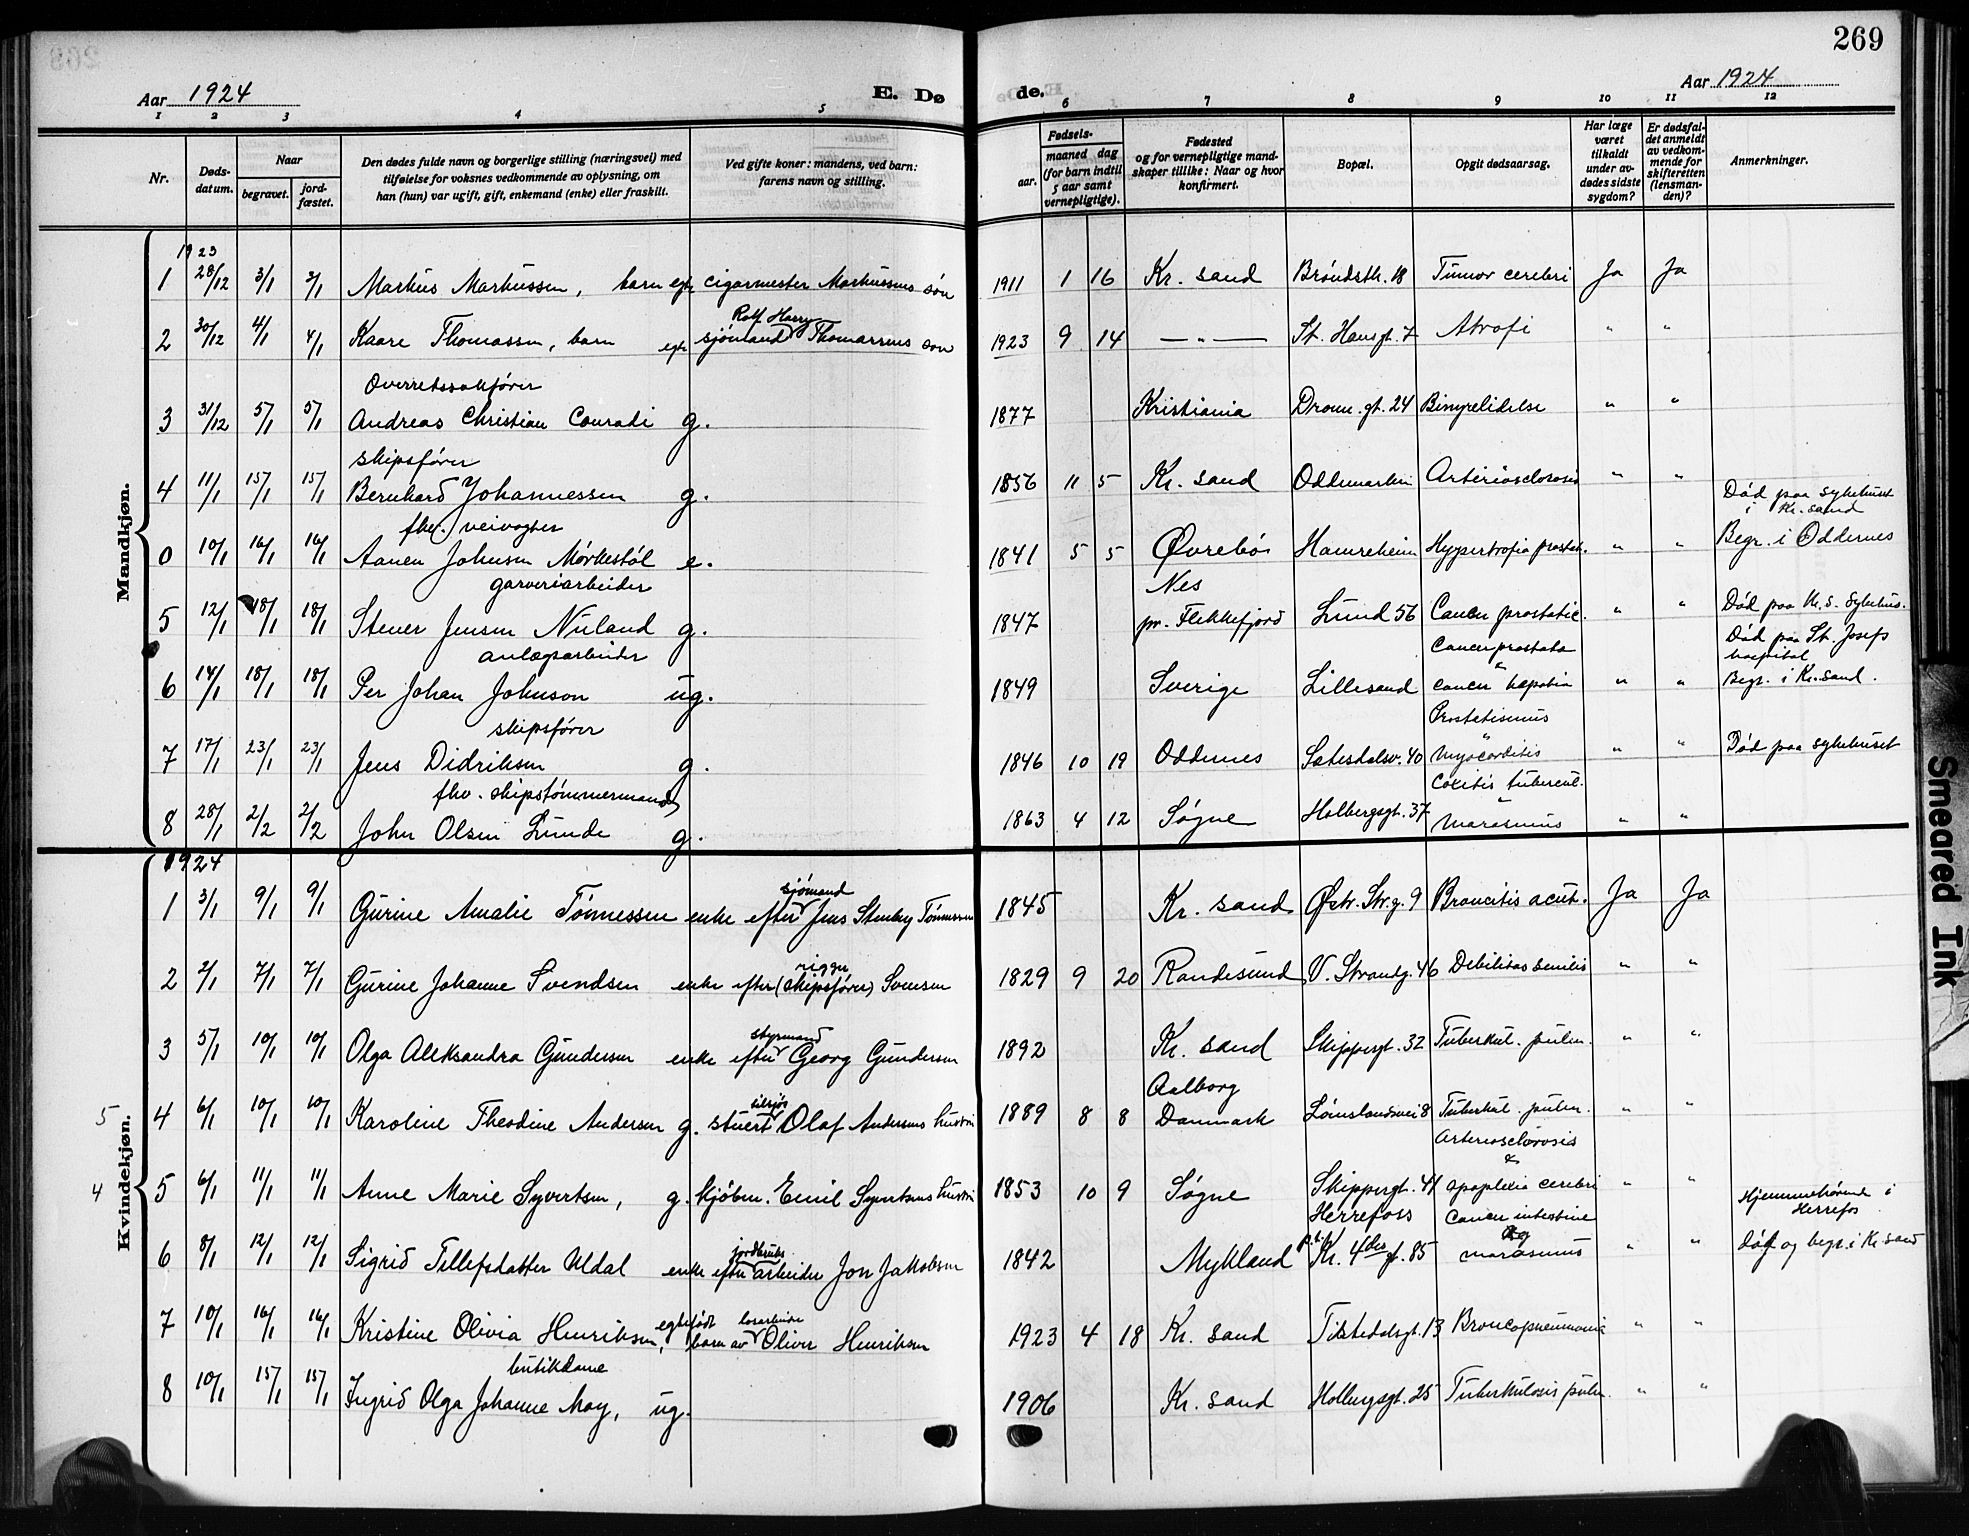 269
Aar 1924
E. Dø
de.
Aar 1924
1 2 3 4 5 6 7 8 9 10 11 12
Nr.
Døds-
datum.
Naar
begravet.
jord-
fæstet.
Den dødes fulde navn og borgerlige stilling (næringsvei) med
tilføielse for voksnes vedkommende av oplysning, om
han (hun) var ugift, gift, enkemand (enke) eller fraskilt.
Ved gifte koner: mandens, ved barn:
farens navn og stilling.
Fødsels-
aar.
maaned dag
(for barn indtil
5 aar samt
vernepligtige).
Fødested
og for vernepligtige mand-
skaper tillike: Naar og hvor
konfirmert.
Bopæl.
Opgit dødsaarsag.
Har læge
været
tilkaldt
under av-
dødes sidste
sygdom?
Er dødsfal-
det anmeldt
av vedkom-
mende for
skifteretten
(lensman-
den)?
Anmerkninger.
Mandkjøn.
1923
1 28/12 3/1 3/1 Markus Markussen, barn egte cigarmester Markussens søn 1911 1 16 Kr. sand Brøndsth. 18 Tumor cerebri Ja Ja
Rolf Harry
2 30/12 4/1 4/1 Kaare Thomassen, barn egte sjømand Thomassens søn 1923 9 14 — " — St. Hansgt. 7 Atrofi " "
Overretssakfører
3 31/12 5/1 5/1 Andreas Christian Conradi g. 1877 Kristiania Dronn. gt. 24 Binyrelidelse " "
skipsfører
4 11/1 15/1 15/1 Bernhard Johannessen g. 1856 11 5 Kr. sand Oddemarken Arteriosclorosis " "
Død paa sykehuset
i Kr. sand
fhv. veivogter
0 10/1 16/1 16/1 Aanen Johnsen Mørkestøl e. 1841 5 5 Øvrebø Hamreheim Hypertrofia prostat. " " Begr. i Oddernes
garveriarbeider
Nes
5 12/1 18/1 18/1 Stener Jensen Nuland g. 1847 pr. Flekkefjord Lund 56 Cancer prostatic. " " Død paa Kr. s. sykehus.
anlægsarbeider
Cancer prostata
Død paa St. Josefs
hospital
6 14/1 18/1 18/1 Per Johan Johnson ug. 1849 Sverige Lillesand " cancer hepatia " " Begr. i Kr. sand.
skipsfører
Prostatismus
7 17/1 23/1 23/1 Jens Didriksen g. 1846 10 19 Oddernes Setesdalsv. 40 " Myocarditis " " Død paa sykehuset
fhv. skipstømmermand
Coxitis tubercul.
8 28/1 2/2 2/2 John Olsen Lunde g. 1863 4 12 Søgne Holbergsgt. 37 " marasmus " "
Kvindekjøn.
1924
sjømand
1 3/1 9/1 9/1 Gurine Amalie Tønnessen enke efter Jens Stenberg Tønnessen 1845 Kr. sand Østr. Str. g. 9 Broncitis acut. Ja Ja
rigger
2 2/1 7/1 7/1 Gurine Johanne Svendsen enke efter (skipsfører) Svensen 1829 9 20 Randesund V. Strandg. 46 Debilitas senilis " "
styrmand
3 5/1 10/1 10/1 Olga Aleksandra Gundersen enke efter Georg Gundersen 1892 Kr. sand Skippergt. 32 Tuberkul. pulm. " "
Aalborg
5 4 6/1 10/1 10/1 Karoline Theodine Andersen g. stuert Olaf Andersens hustru 1889 8 8 Danmark Lømslandsvei 8 Tuberkul. pulm. " "
Arteriosclorosis
&
4 5 6/1 11/1 11/1 Anne Marie Syvertsen, g. kjøbm. Emil Syvertsens hustru 1853 10 9 Søgne Skippergt. 41 apoplexia cerebri " "
Herrefoss
Cancer intestine
Hjemmehørende i
Herrefos
jordbruks
og
6 8/1 12/1 12/1 Sigrid Tellefsdatter Uldal enke efter arbeider Jon Jakobsen 1842 Mykland p.t. Kr. 4des gt. 85 marasmus " " Død og begr. i Kr sand
egtefødt losarbeider
7 10/1 16/1 16/1 Kristine Olivia Henriksen, barn av Oliver Henriksen 1923 4 18 Kr. sand Tilstedalsgt. 13 Broncopneumonia " "
butikdame
8 10/1 15/1 15/1 Ingrid Olga Johanne May, ug. 1906 Kr. sand Holbergsgt. 25 Tuberkulosis pulm. " "
Smeared Ink